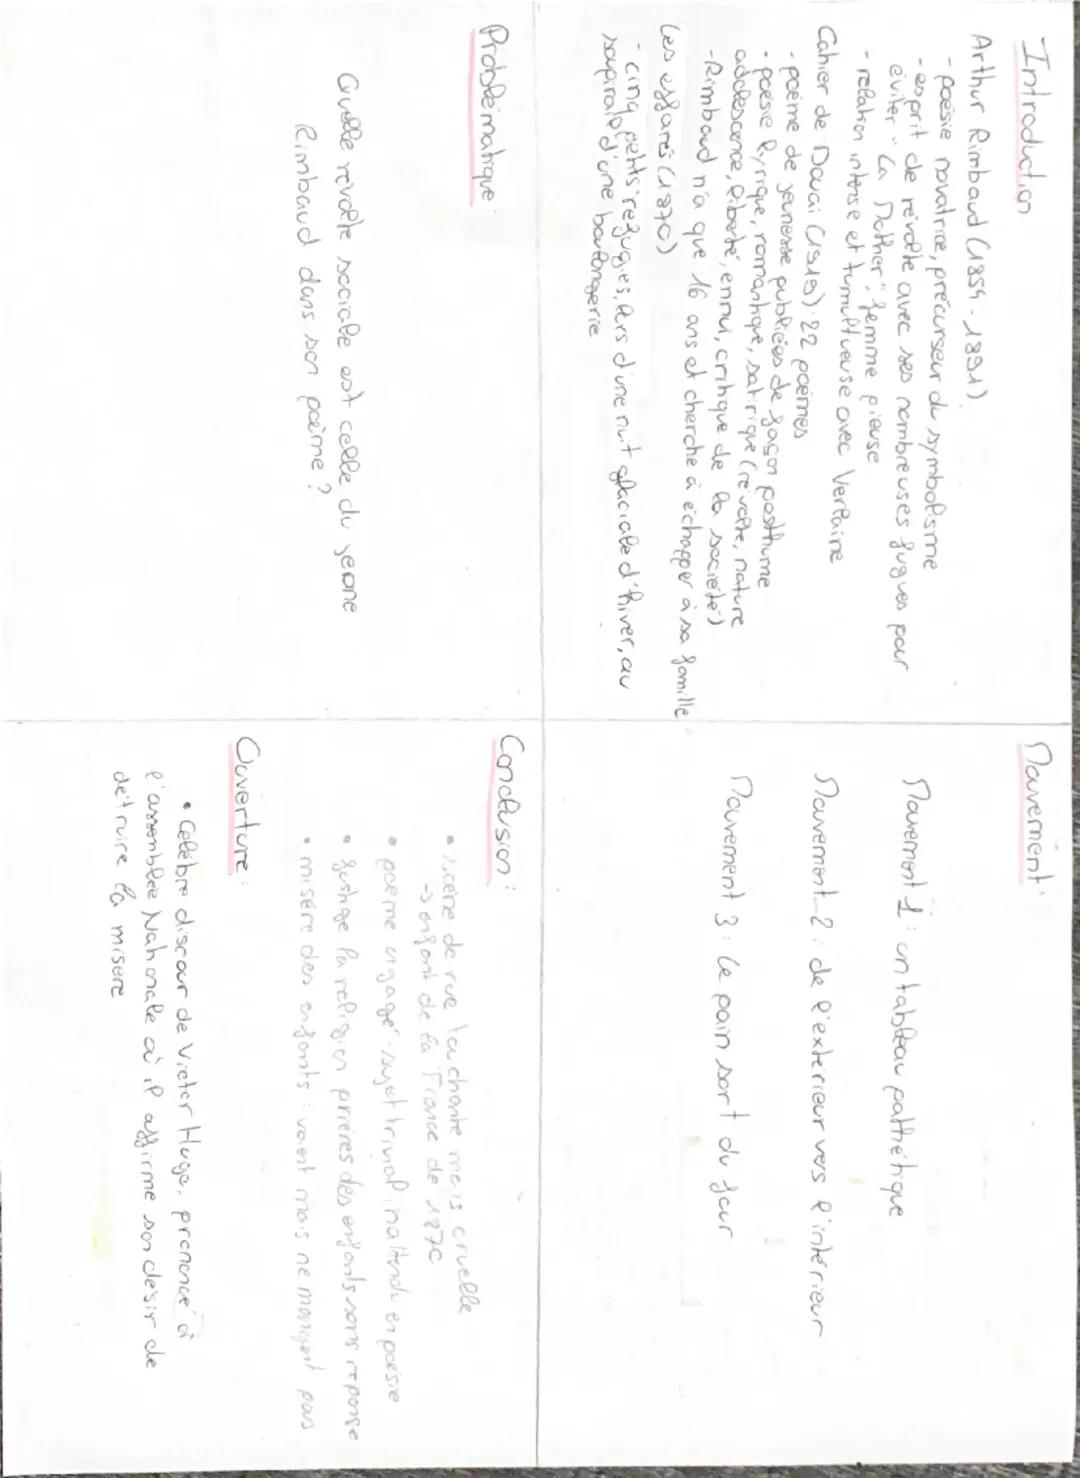 Introduction
Arthur Rimbaud (1854-1891)
- poésie novatrice, précurseur du symbolisme
- esprit de révolte avec ses nombreuses fugues pour
éviter "La Mother", femme pieuse
- relation intense et tumultueuse avec Verlaine
Cahier de Douai (1919) 22 poèmes
- poème de jeunesse publiées de façon posthume
• poésie lyrique, romantique, satirique (révolte, nature
adolescence, liberté, ennui, critique de la société)
- Rimbaud n'a que 16 ans et cherche à échapper à sa famille
Les effarés (1870)
- cinq petits refugies, lors d'une nuit glaciale d'hiver, au
soupirail d'une boulangerie
Problématique:
Quelle révolte sociale est celle du jeune
Rimbaud dans son poème?
Mouvement:
Mouvement 1: un tableau pathétique
Mouvement 2: de l'extérieur vers l'intérieur
Mouvement 3: Le pain sort du four
Conclusion:
• scène de rue touchante mais cruelle
→ enfant de la France de 1870
• poème engagé: sujet trivial inattendu en poésie
• fustige la religion prières des enfants sans réponse
• misère des enfants: voient mais ne mangent pas
Ouverture:
• Célèbre discour de Victor Hugo, prononcé à
l'assemblée Nationale où il affirme son désir de
détruire la misère